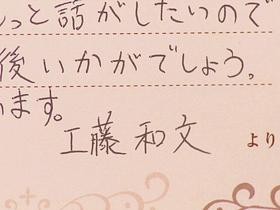 っと話がしたいので
後いかがでしょう。
ます。
工藤和文 より